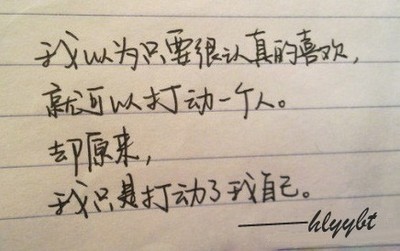 我以为只要很认真的喜欢，
就可以打动一个人。
却原来，
我只是打动了我自己。
——hlyybt